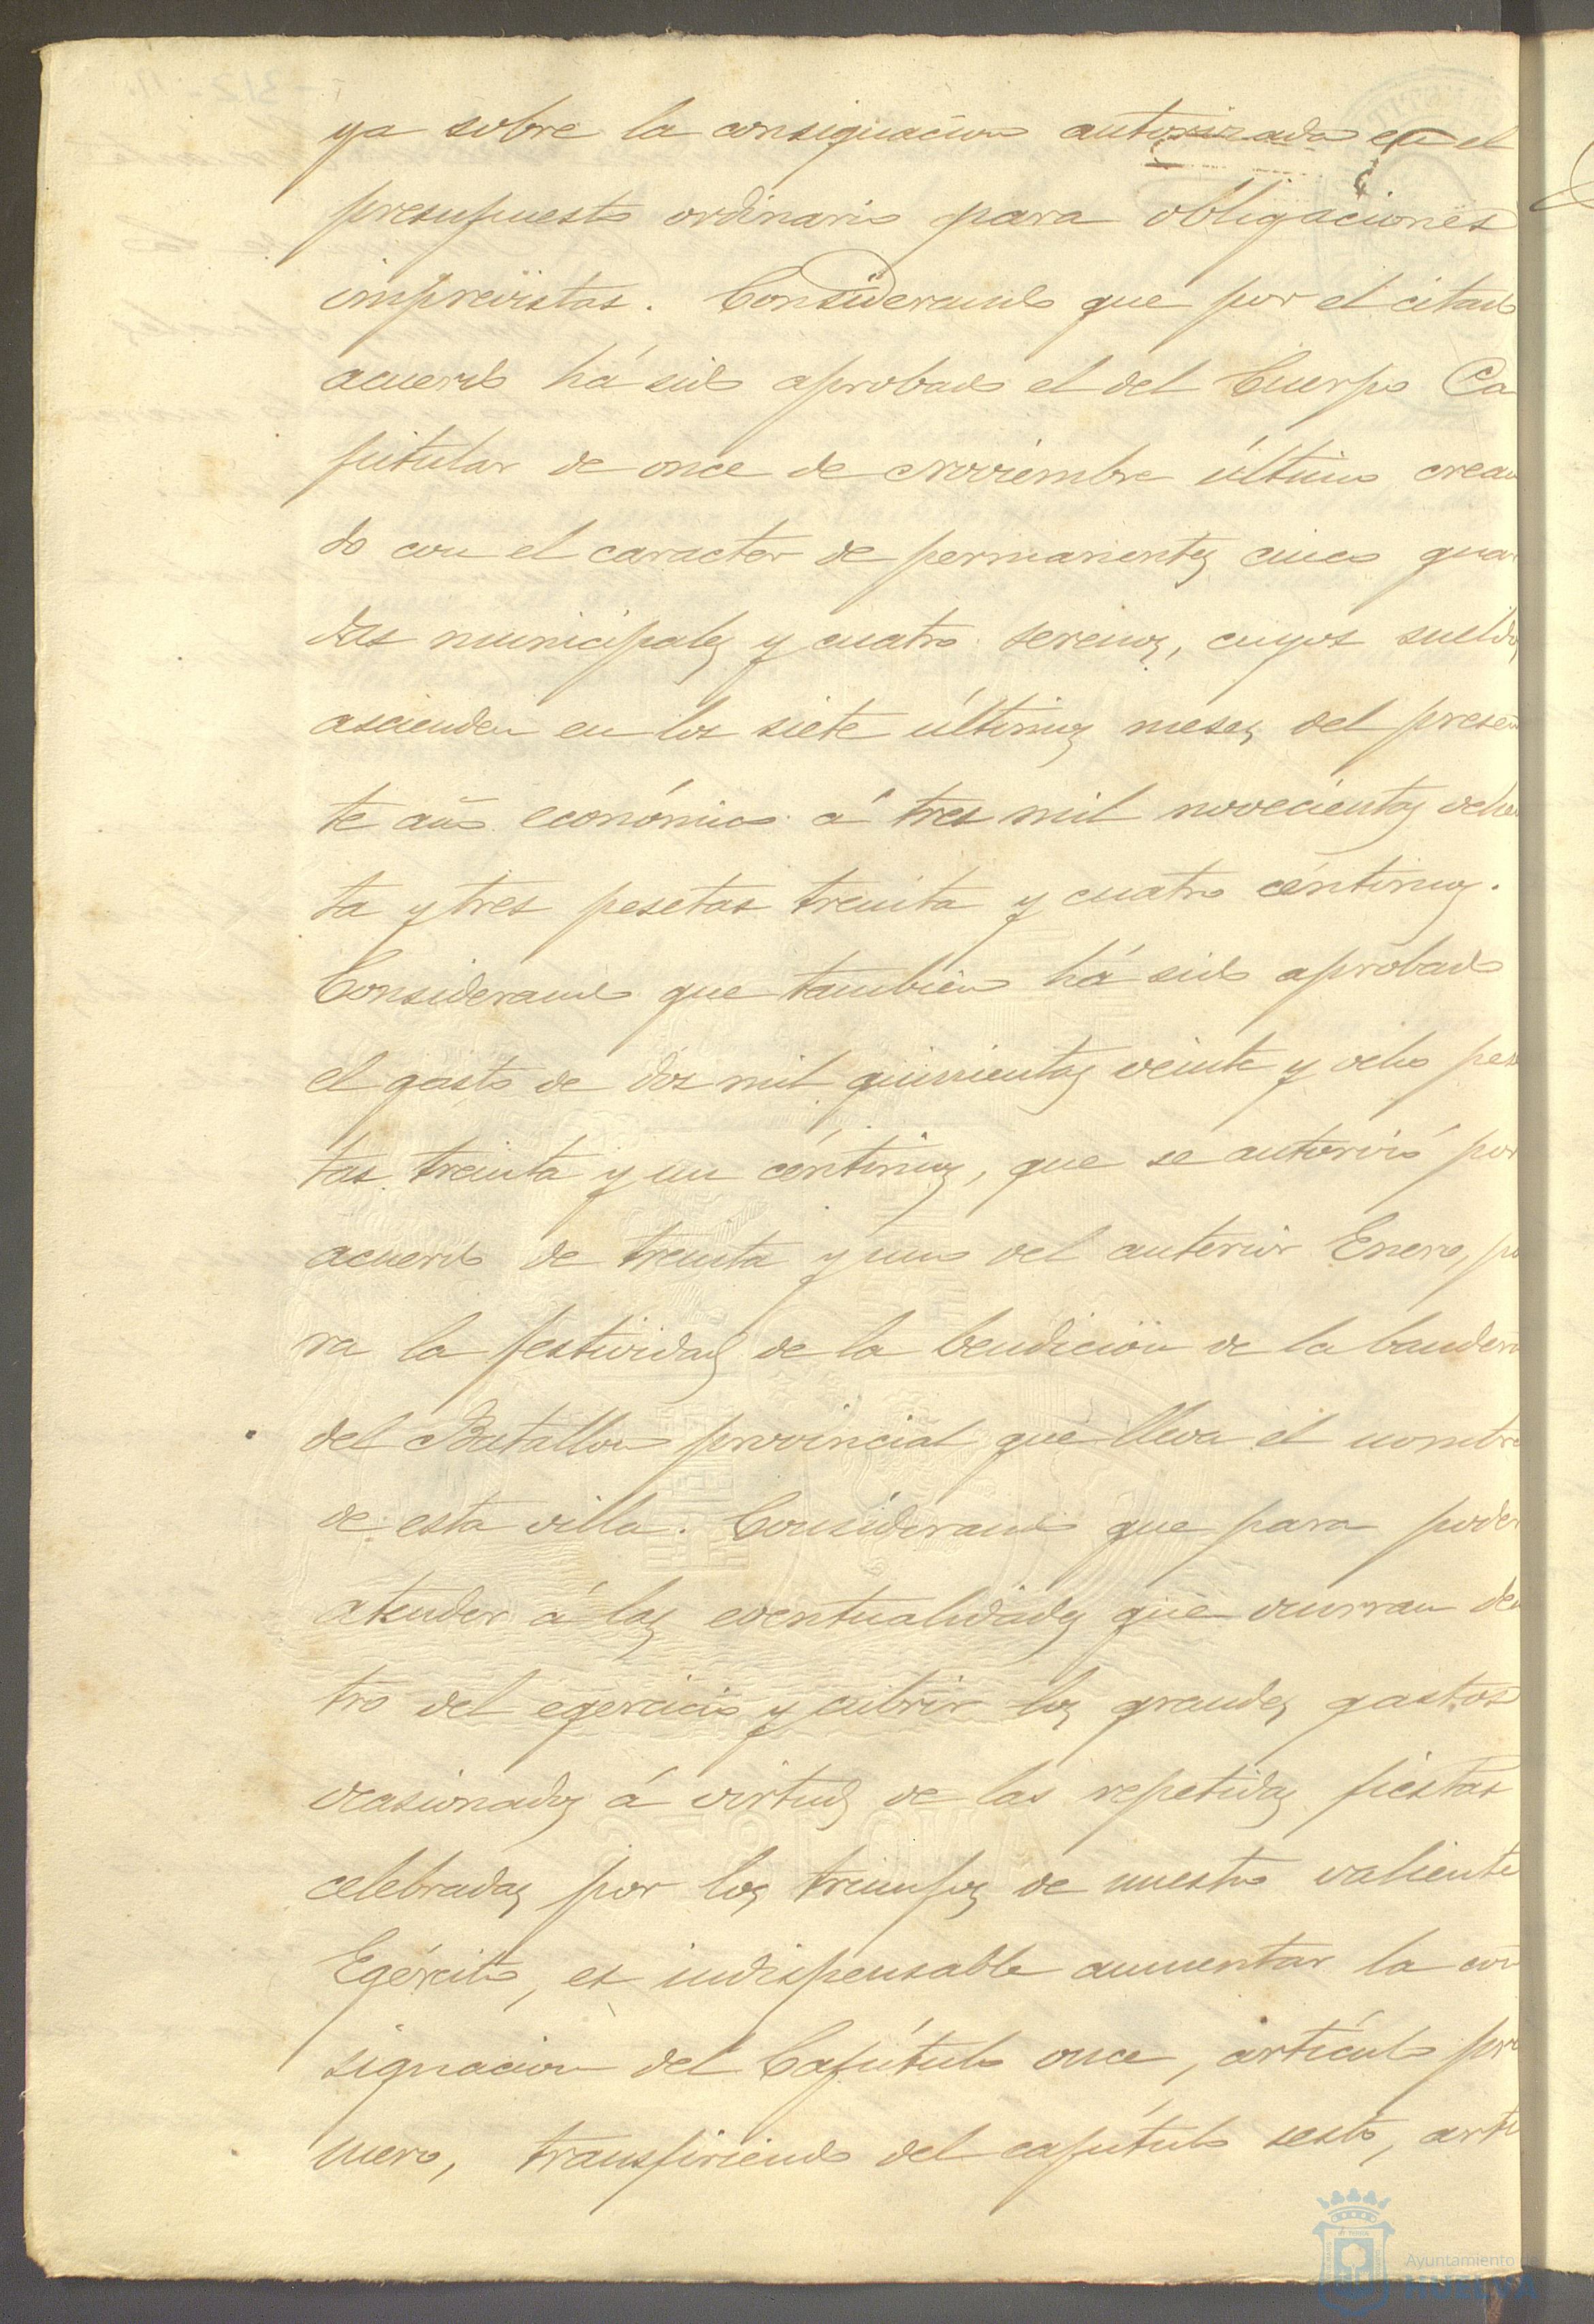 ya sobre la consignacion autorizada en el
presupuesto ordinario para obligaciones
imprevistas. Considerando que por el citado
acuerdo há sido aprobado el del Cuerpo Ca
pitular de once de Noviembre último crean
do con el caracter de permanentes cinco guar
das municipales y cuatro serenos, cuyos sueldos
ascienden en los siete últimos meses del presen
te año económico á tres mil novecientas ochen
ta y tres pesetas treinta y cuatro céntimos.
Considerando que tambien há sido aprobado
el gasto de dos mil quinientas veinte y ocho pese
tas treinta y un céntimos, que se autorizó por
acuerdo de treinta y uno del anterior Enero, pa
ra la festividad de la bendicion de la bandera
del Batallon provincial que lleva el nombre
de esta villa. Considerando que para poder
atender á las eventualidades que ocurran den
tro del egercicio y cubrir los grandes gastos
ocasionados á virtud de las repetidas fiestas
celebradas por los triunfos de nuestro valiente
Egército, es indispensable aumentar la con
signacion del Capítulo once, artículo pri
mero, transfiriendo del capítulo sesto, artí
AÑO 1876
Ayuntamiento de
HUELVA